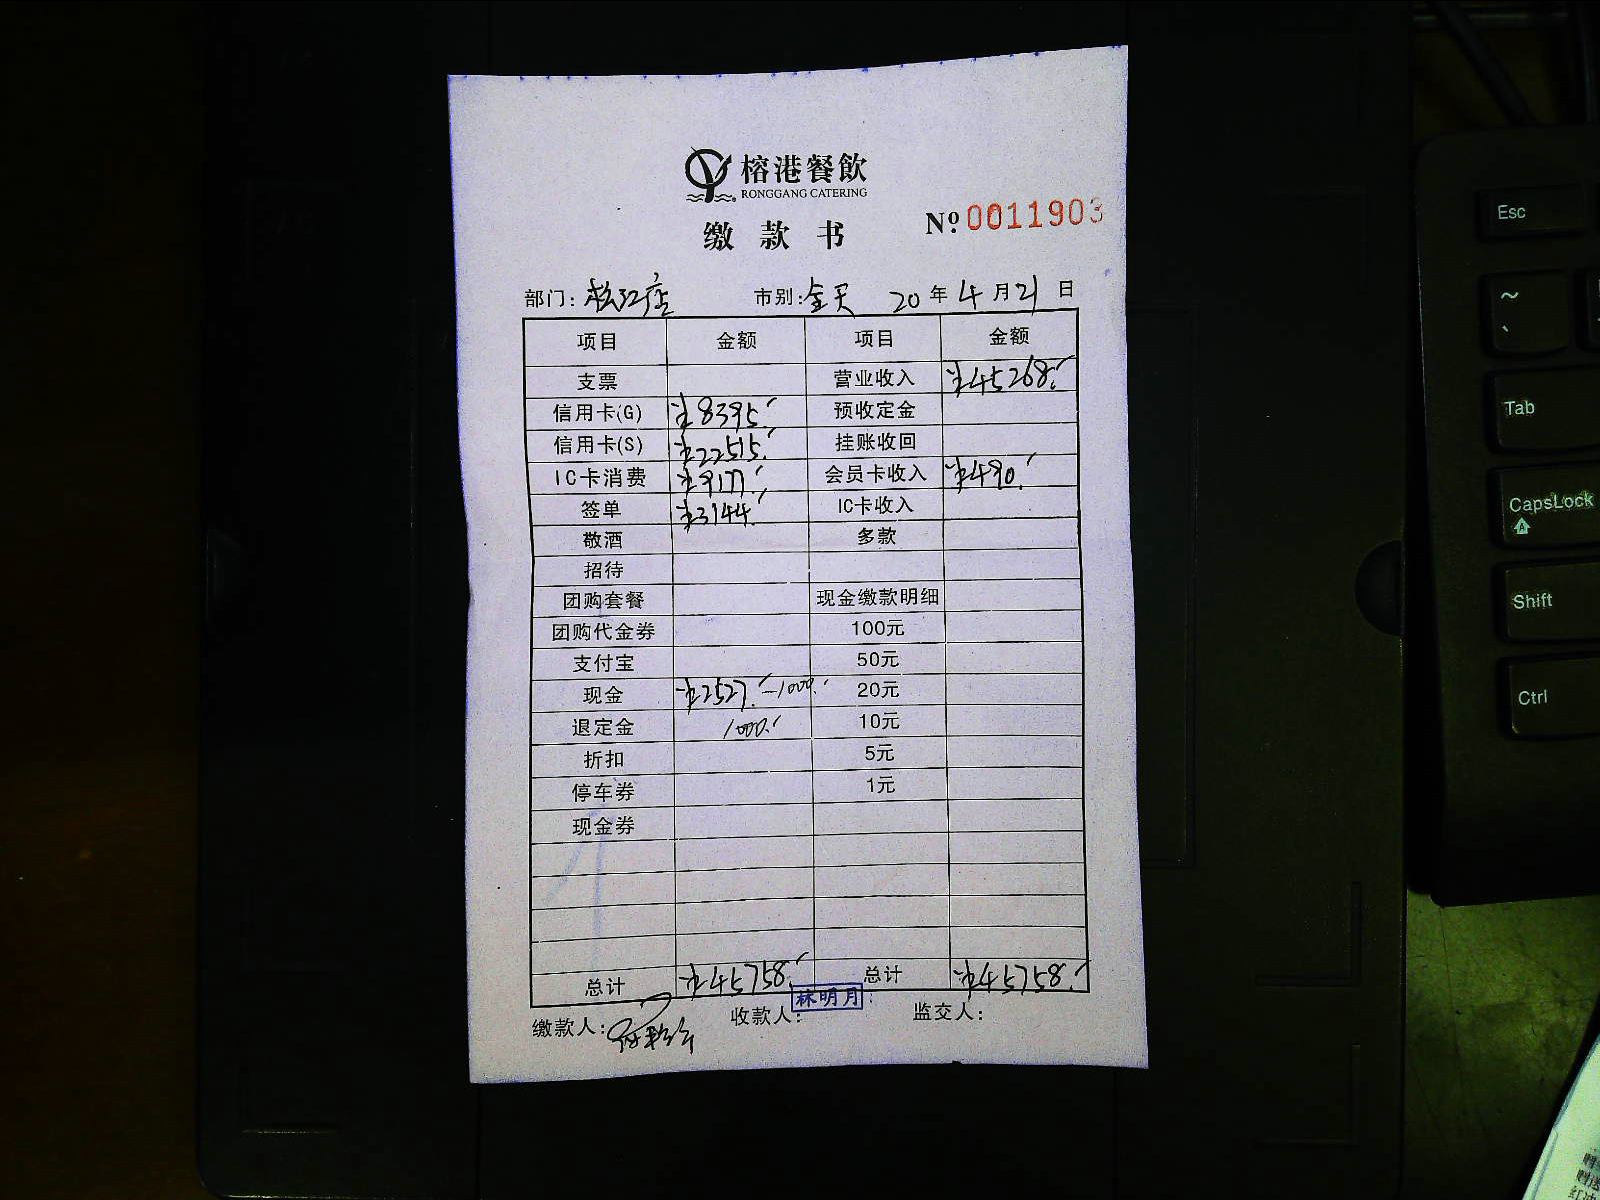 榕港餐飲
RONGGANG CATERING
缴款书 №0011903
部门：松江店 市别：全天 20年4月21日
项目 金额 项目 金额
支票 营业收入 ¥45268.
信用卡(G) ¥8395. 预收定金
信用卡(S) ¥22515. 挂账收回
IC卡消费 ¥9177. 会员卡收入 ¥490.
签单 ¥3144. IC卡收入
敬酒 多款
招待
团购套餐 现金缴款明细
团购代金券 100元
支付宝 50元
现金 ¥2527. -1000. 20元
退定金 1000. 10元
折扣 5元
停车券 1元
现金券
总计 ¥45758. 总计 ¥45758.
缴款人： 收款人：林明月 监交人：
Esc
~
、
Tab
CapsLock
A
Shift
Ctrl